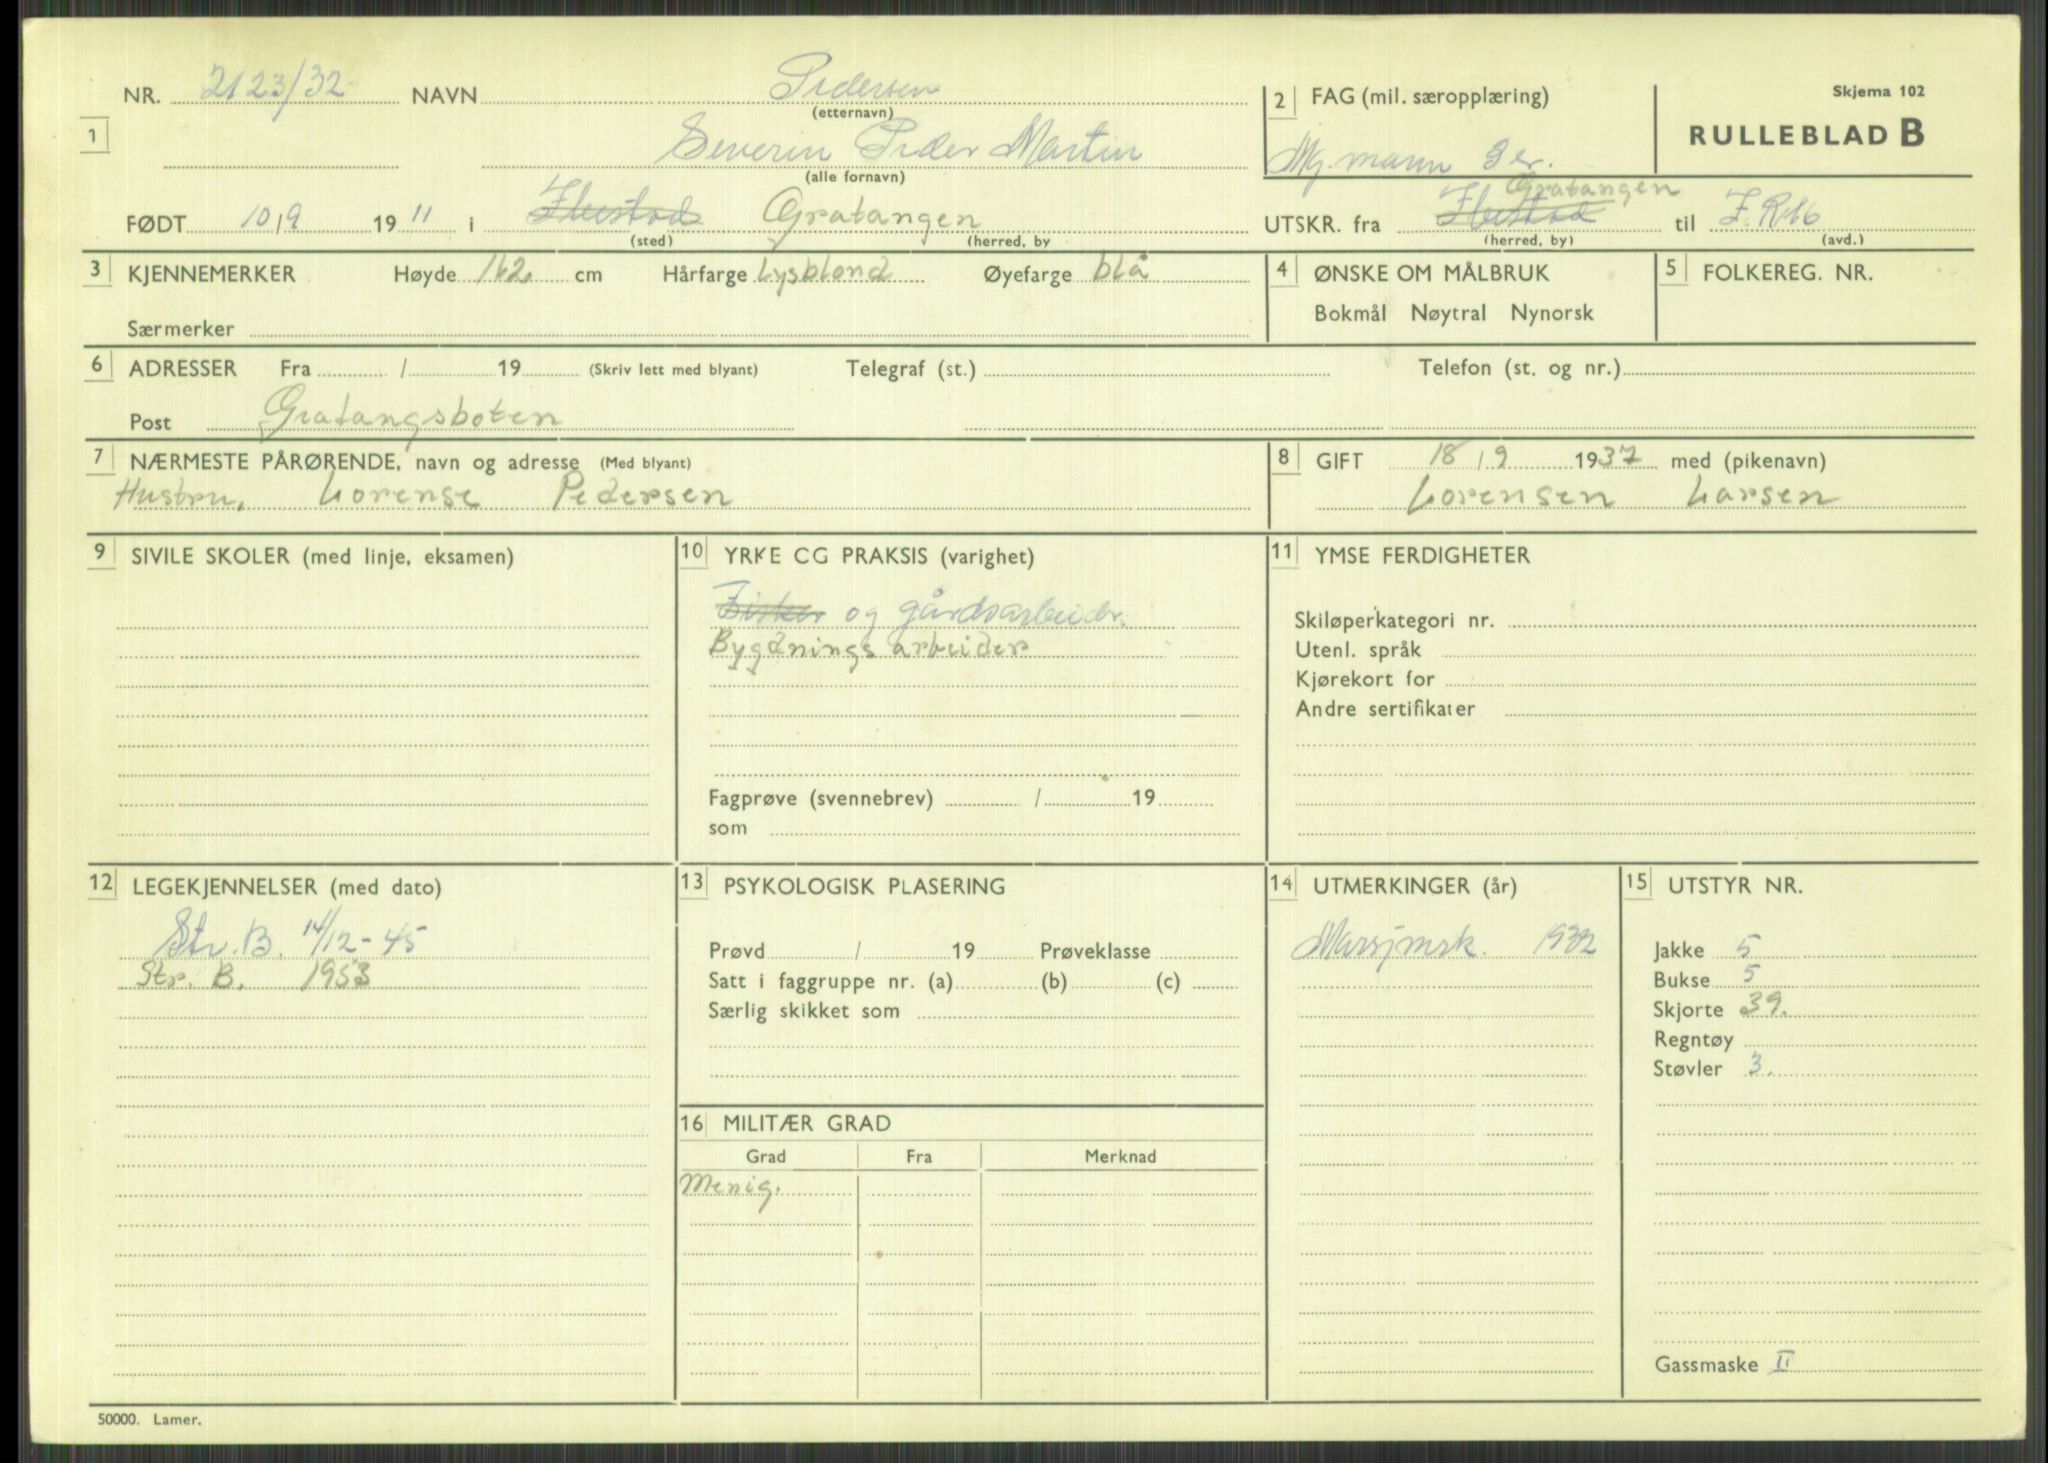 NR. 2123/32 NAVN Pedersen
(etternavn)
1 Severin Peder Martin
(alle fornavn)
FØDT 10/9 1911 i Ibestad Gratangen
(sted) (herred, by
2 FAG (mil. særopplæring)
Mg. mann
Skjema 102
RULLEBLAD B
Gratangen
UTSKR. fra Ibestad til I.R.16
(herred, by) (avd.)
3 KJENNEMERKER Høyde 162 cm Hårfarge Lysblond Øyefarge blå
Særmerker
4 ØNSKE OM MÅLBRUK
Bokmål Nøytral Nynorsk
5 FOLKEREG. NR.
6 ADRESSER Fra / 19 (Skriv lett med blyant) Telegraf (st.) Telefon (st. og nr.)
Post Gratangsboten
7 NÆRMESTE PÅRØRENDE, navn og adresse (Med blyant)
Hustru, Lorense Pedersen
8 GIFT 18/9 1937 med (pikenavn)
Lorensen Larsen
9 SIVILE SKOLER (med linje, eksamen)
10 YRKE CG PRAKSIS (varighet)
Fisker og gårdsarbeider.
Bygdnings arbeider
Fagprøve (svennebrev) / 19
som
11 YMSE FERDIGHETER
Skiløperkategori nr.
Utenl. språk
Kjørekort for
Andre sertifikater
12 LEGEKJENNELSER (med dato)
Str. B. 14/12-45
Str. B. 1953
13 PSYKOLOGISK PLASERING
Prøvd / 19 Prøveklasse
Satt i faggruppe nr. (a) (b) (c)
Særlig skikket som
14 UTMERKINGER (år)
Marsjmrk. 1932
15 UTSTYR NR.
Jakke 5
Bukse 5
Skjorte 39.
Regntøy
Støvler 3.
Gassmaske II
16 MILITÆR GRAD
Grad Fra Merknad
Menig.
50000. Lamer.